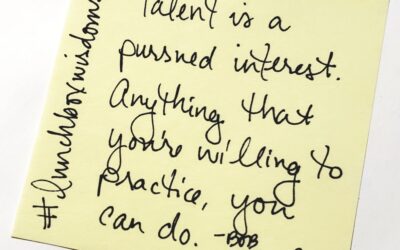 Talent is a
pursued interest.
Anything that
you're willing to
practice, you
can do. -BOB
#lunchboxwisdoms